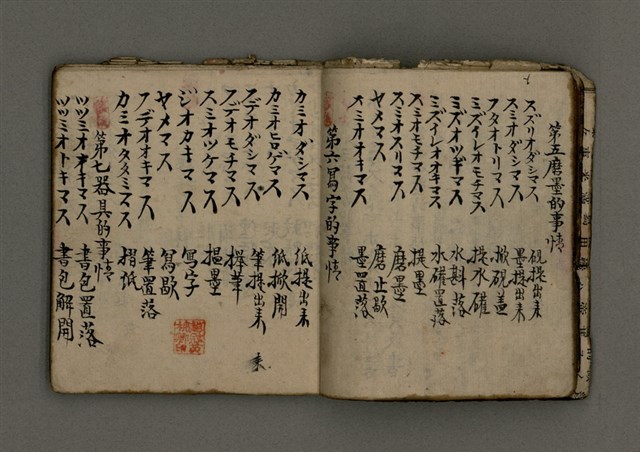 第五磨墨的事情
スズリオダシマス 硯提出來
スミオダシマス 墨提出來
フタオトリマス 掀硯盖
ミズイレオモチマス 提水磪
ミズオツギマス 水斟落
ミズイレオオキマス 水磪置落
スミオモチマス 提墨
スミオスリマス 磨墨
ヤメマス 磨止歇
スミオオキマス 墨置落
第六寫字的事情
カミオダシマス 低提出來
カミオヒロゲマス 低掀開
フデオダシマス 筆提出來
フデオモチマス 攑筆
スミオツケマス 搵墨
ジオカキマス 寫字
ヤメマス 寫歇
フデオオキマス 筆置落
カミオタタミマス 摺低
第七器具的事情
ツツミオオキマス 書包置落
ツツミオトキマス 書包解開